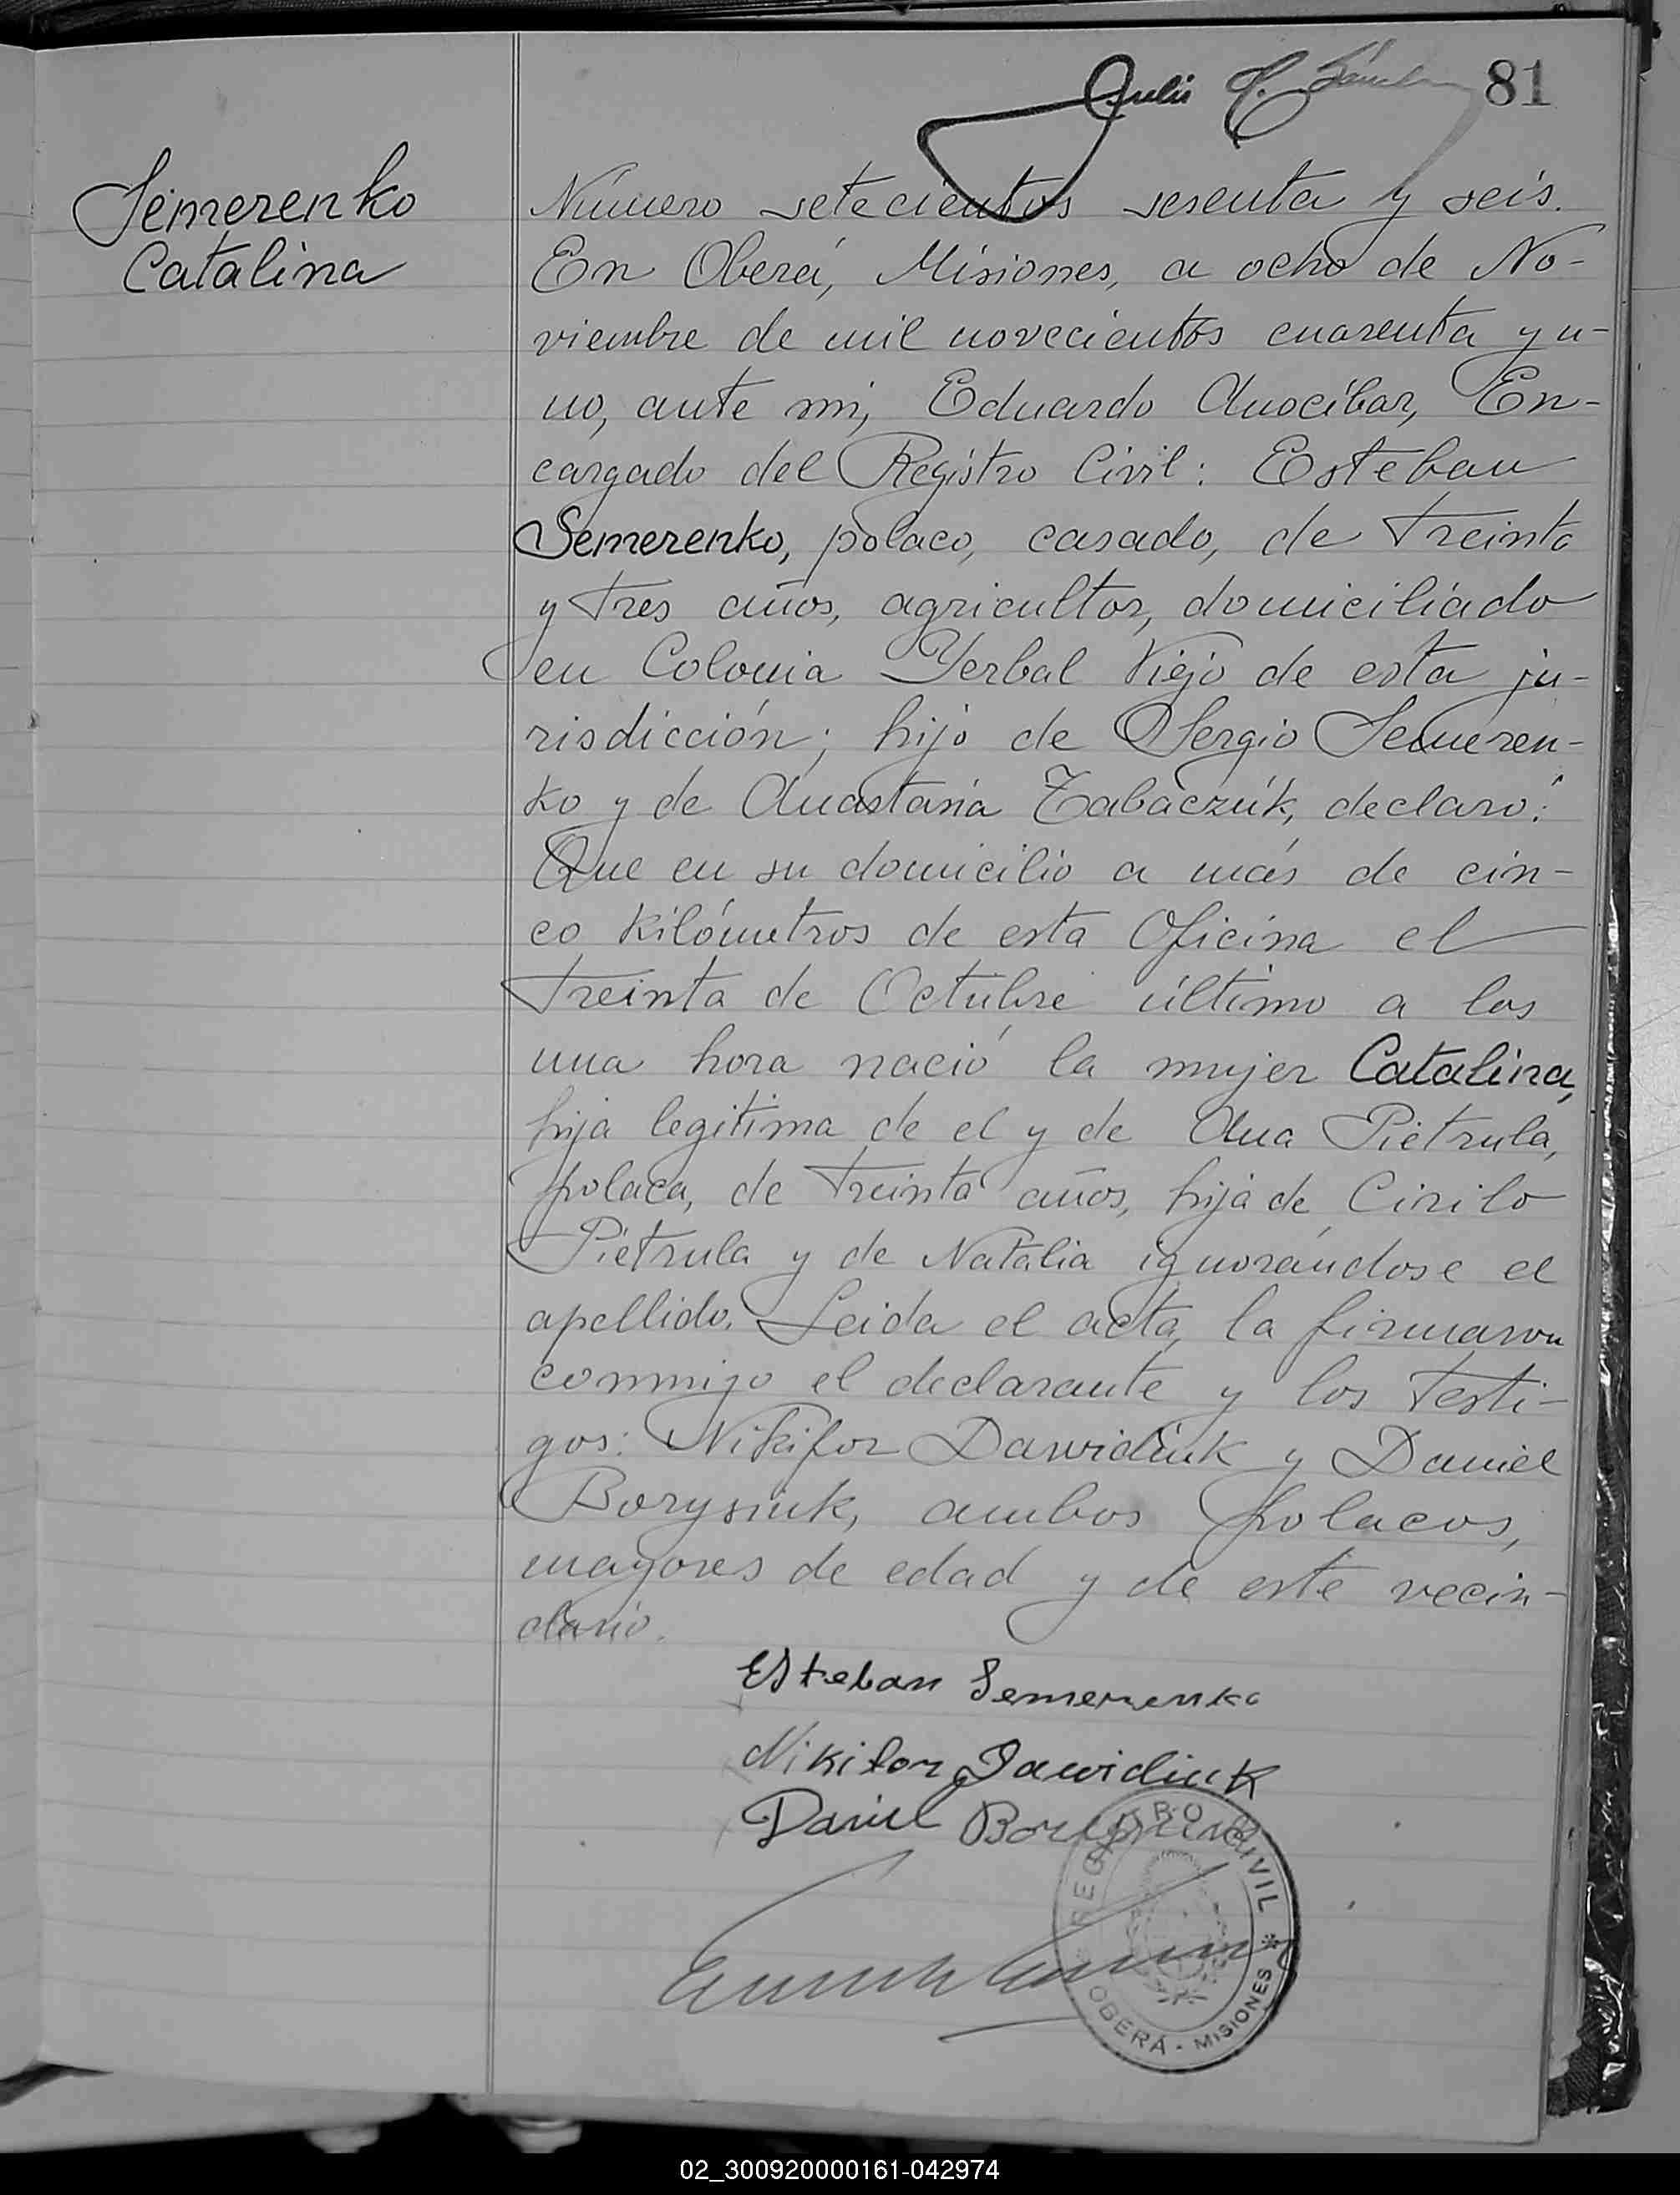 81
Semerenko
Catalina
Número setecientos sesenta y seis.
En Oberá, Misiones, a ocho de No-
viembre de mil novecientos cuarenta y u-
no, ante mi, Eduardo Anocíbar, En-
cargado del Registro Civil: Esteban
Semerenko, polaco, casado, de treinta
y tres años, agricultor, domiciliado
en Colonia Yerbal Viejo de esta ju-
risdicción; hijo de Sergio Semeren-
ko y de Anastasia Tabaczúk, declaró:
Que en su domicilio a más de cin-
co kilómetros de esta Oficina el
treinta de Octubre último a las
una hora nació la mujer Catalina,
hija legítima de el y de Ana Pietrula,
polaca, de treinta años, hija de Cirilo
Pietrula y de Natalia ignorándose el
apellido. Leida el acta, la firmaron
conmigo el declarante y los testi-
gos: Nikifor Dawidiuk y Daniel
Borysiuk, ambos polacos,
mayores de edad y de este vecin-
dario.
Esteban Semerenko
Nikifor Dawidiuk
Daniel
REGISTRO CIVIL
OBERÁ - MISIONES
02_300920000161-042974